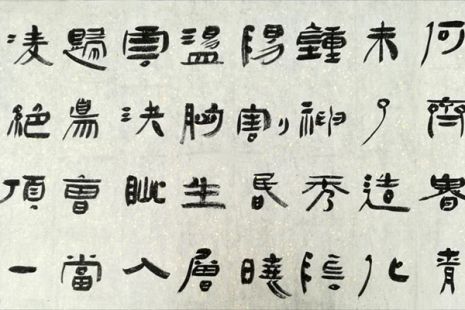 何齊魯青
未了造化
鍾神秀陰
陽割昏曉
盪胸生層
雲決眦入
歸鳥會當
凌絕頂一